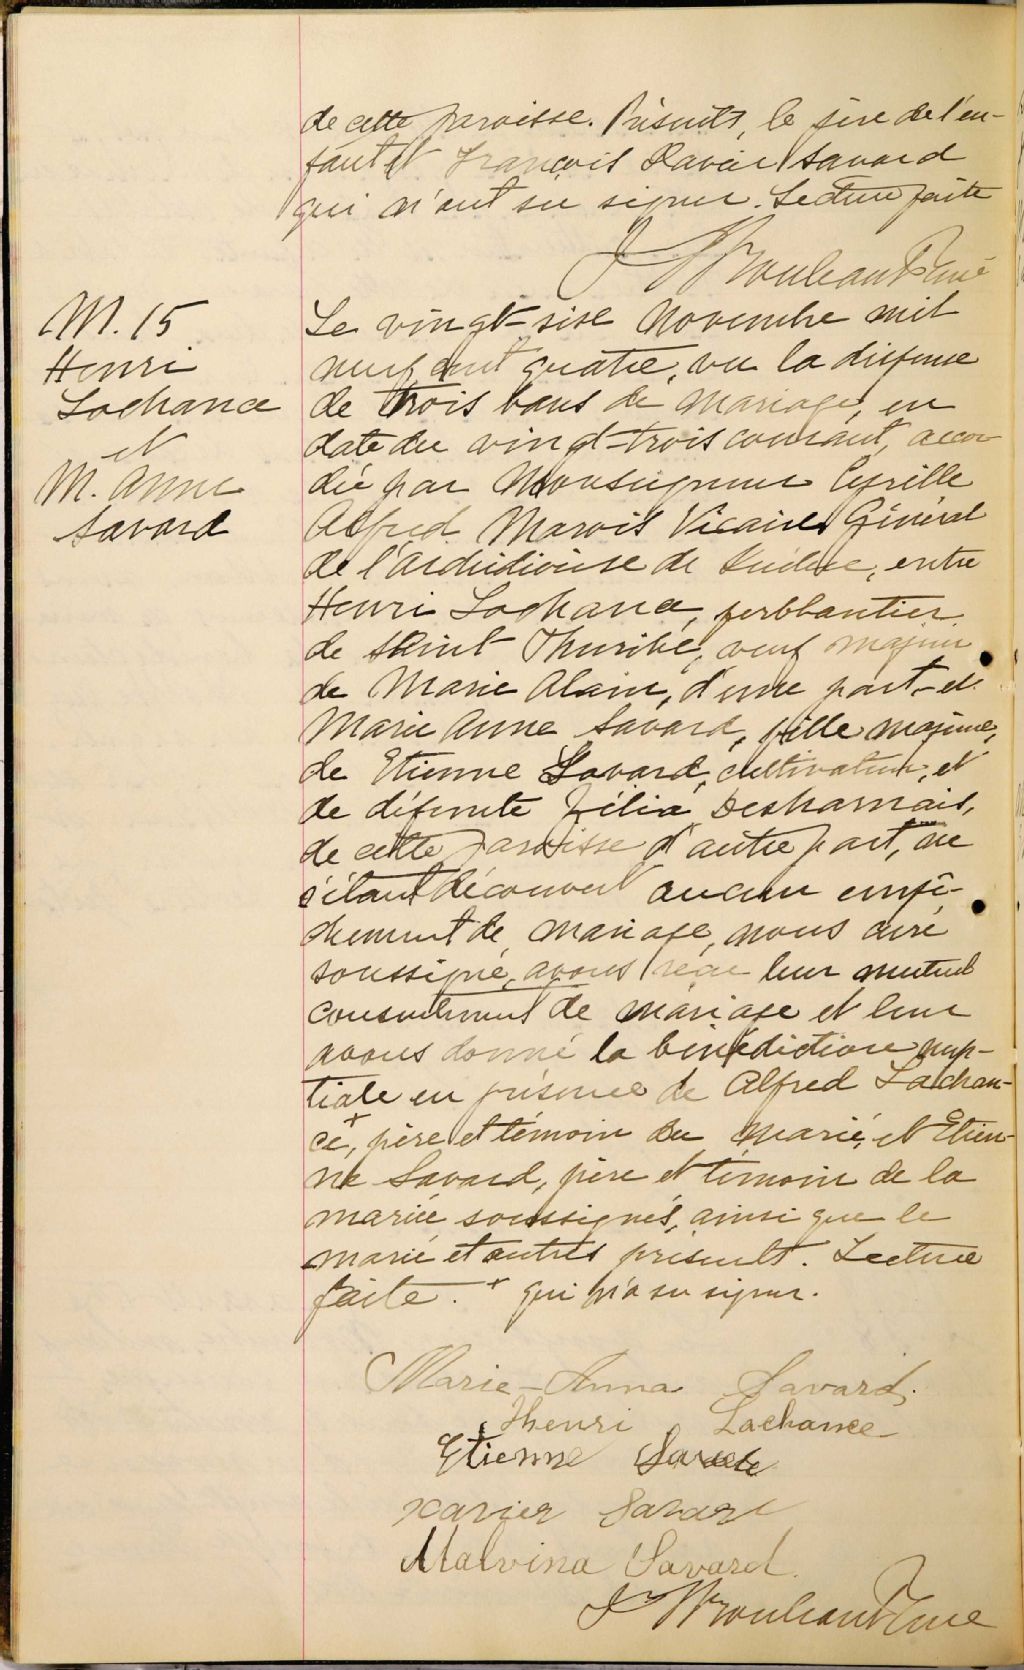 de cette paroisse. Présents, le père de l'en-
fant et François Xavier Savard
qui n'ont su signer. Lecture faite
Ptre curé
M. 15
Henri
Lachance
et
M. Anne
Savard
Le vingt-six Novembre mil
neuf cent quatre, vu la dispense
de trois bans de mariage, en
date du vingt-trois courant, accor-
dée par Monseigneur Cyrille
Alfred Marois Vicaire Général
de l'Archidiocèse de Québec, entre
Henri Lachance, ferblantier
de Saint Thuribe, veuf majeur
de Marie Alain, d'une part, et
Marie Anne Savard, fille majeure,
de Etienne Savard, cultivateur, et
de défunte Félia Desharnais,
de cette paroisse d'autre part, ne
s'étant découvert aucun empê-
chement de mariage, nous curé
soussigné, avons reçu leur mutuel
consentement de mariage et leur
avons donné la bénédiction nup-
tiale en présence de Alfred Lachan-
ce+, père et témoin du marié, et Etien-
ne Savard, père et témoin de la
mariée soussignés, ainsi que le
marié et autres présents. Lecture
faite. + qui n'a su signer.
Marie-Anna Savard.
Henri Lachance
Etienne Savard
Xavier Savard
Malvina Savard.
Ptre curé